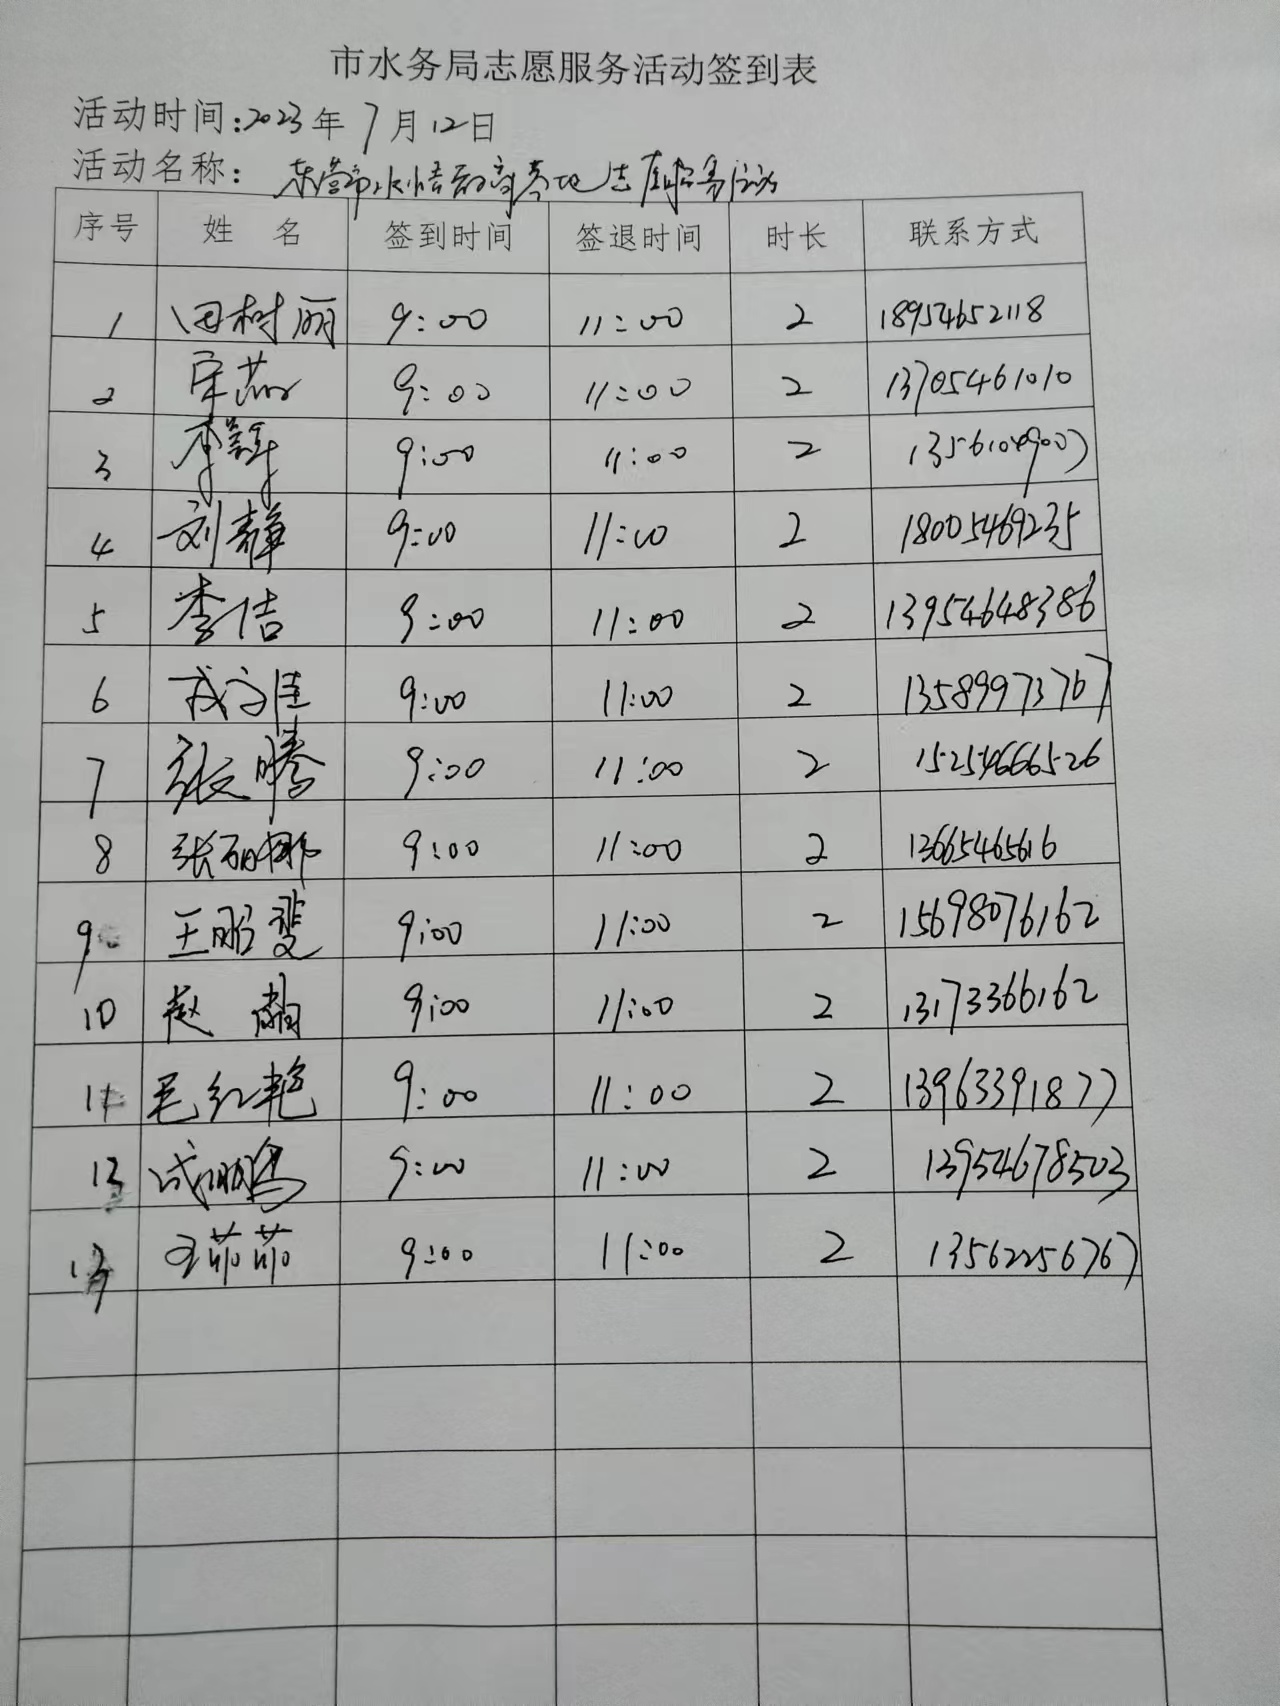 市水务局志愿服务活动签到表
活动时间:2023年7月12日
活动名称: 东营市水情教育基地志愿服务活动
序号 姓 名 签到时间 签退时间 时长 联系方式
1 田树丽 9:00 11:00 2 18954652118
2 9:00 11:00 2 13705461010
3 李辉 9:00 11:00 2
4 刘静 9:00 11:00 2 18005469235
5 李洁 9:00 11:00 2 13954648386
6 9:00 11:00 2 13589973767
7 张腾 9:00 11:00 2 15254666526
8 张丽娜 9:00 11:00 2 13665465616
9 王鹏斐 9:00 11:00 2 15698076162
10 赵 9:00 11:00 2 13173366162
11 毛红艳 9:00 11:00 2 13963391877
9:00 11:00 2 13954678503
王茹茹 9:00 11:00 2 13562256767